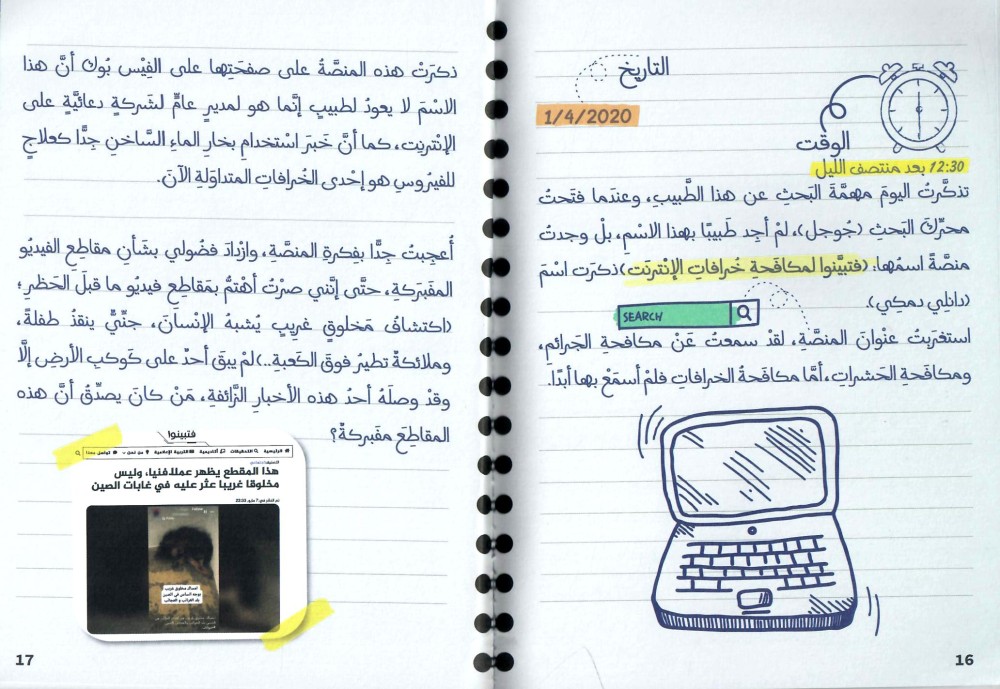 التاريخ
1/4/2020
الوقت
12:30 بعد منتصف الليل
تذكَّرتُ اليومَ مهمَّةَ البَحثِ عن هذا الطَّبيبِ، وعندَما فتَحتُ
محرِّكَ البَحثِ (جُوجل)، لمْ أجِد طَبيبًا بهذا الاسْمِ، بلْ وجدتُ
منصَّةً اسمُها: (فتبيَّنوا لمكافَحةِ خُرافاتِ الإنْترنَت)ذكرَت اسْمَ
(دانِلي دمكِي).
SEARCH
استغرَبتُ عنْوانَ المنصَّةِ، لقدْ سمعتُ عَنْ مكافحةِ الجَرائمِ،
ومكافَحةِ الحَشراتِ، أمَّا مكافَحةُ الخرافاتِ فلمْ أسمَعْ بها أبدًا.
16
ذكرَتْ هذه المنصَّةُ على صفحَتِها على الفِيْس بُوك أنَّ هذا
الاسْمَ لا يعودُ لطبيبٍ إنَّما هو لمديرٍ عامٍّ لشَركةٍ دعائيَّةٍ على
الإنْترنِت، كما أنَّ خبَرَ اسْتخدامِ بخارِ الماءِ السَّاخنِ جِدًّا كعلاجٍ
للفيرُوسِ هو إحْدى الخُرافاتِ المتداوَلةِ الآنَ.
أُعجِبتُ جِدًّا بفكرةِ المنصَّةِ، وازْدادَ فضُولي بشَأنِ مقاطعِ الفيديُو
المفَبركةِ، حتَّى إنَّني صرْتُ أهْتمُّ بمَقاطعِ فيديُو ما قبلَ الحَظرِ؛
(اكتشافُ مَخلوقٍ غريبٍ يُشبهُ الإنْسانَ، جنِّيٌّ ينقذُ طفلةً،
وملائكةٌ تطيرُ فوقَ الكَعبةِ..)لمْ يبقَ أحدٌ على كَوكبِ الأرضِ إلَّا
وقدْ وصلَهُ أحدُ هذه الأخبارِ الزَّائفةِ، مَنْ كانَ يصدِّقُ أنَّ هذه
المقاطِعَ مفَبركةٌ؟
فتبينوا
الرئيسية التحقيقات أكاديمية التربية الإعلامية من نحن تواصل معنا
هذا المقطع يظهر عملا فنيا، وليس
مخلوقا غريبا عثر عليه في غابات الصين
17